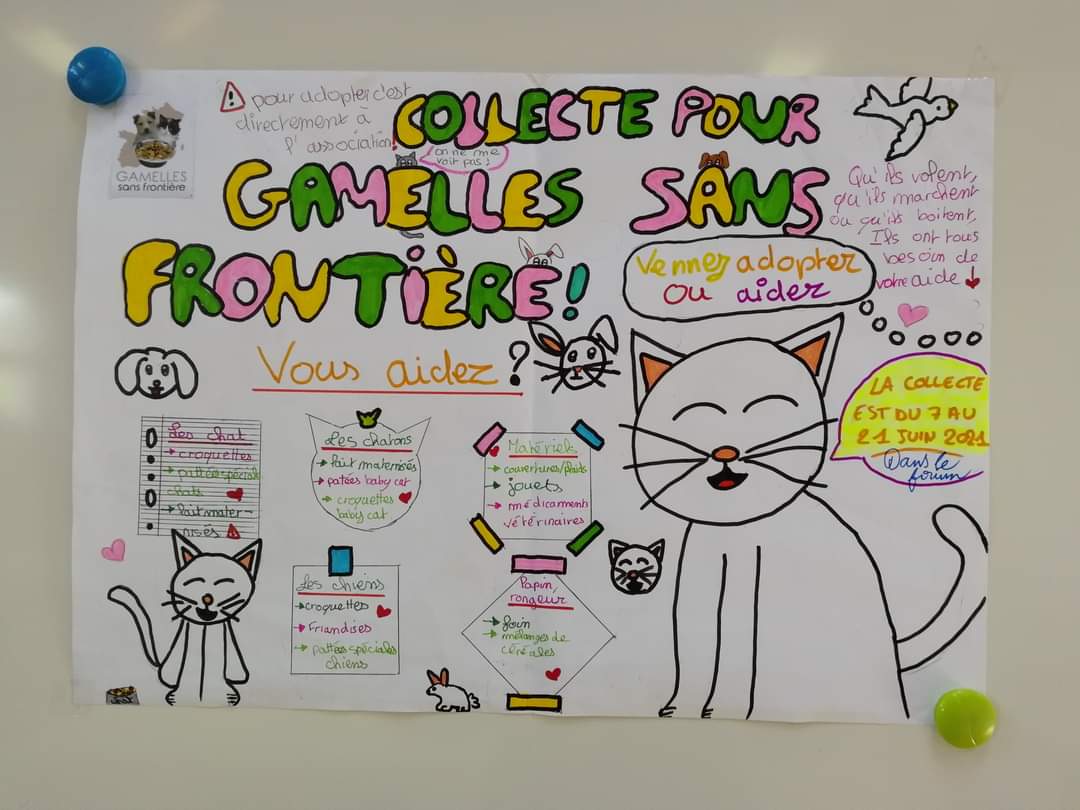 ⚠ pour adopter c'est
directement à
l'association!
COLLECTE POUR
GAMELLES SANS
FRONTIÈRE!
GAMELLES
sans frontière
on ne me
voit pas!
Qu'ils volent,
qu'ils marchent
ou qu'ils boitent,
Ils ont tous
besoin de
votre aide
Vennez adopter
ou aider
LA COLLECTE
EST DU 7 AU
21 JUIN 2021
Dans le
forum
Vous aidez ?
Les chat
→ croquettes
→ pattées spécial
chats
→ lait mater-
nisés
Les chatons
→ lait maternisés
→ patées baby cat
→ croquettes
baby cat
Matériels
→ couvertures/plaids
→ jouets
→ médicaments
vétérinaires
Les chiens
→ croquettes
→ Friandises
→ pattées spéciales
chiens
Papin,
rongeur
→ foin
→ mélanges de
céréales